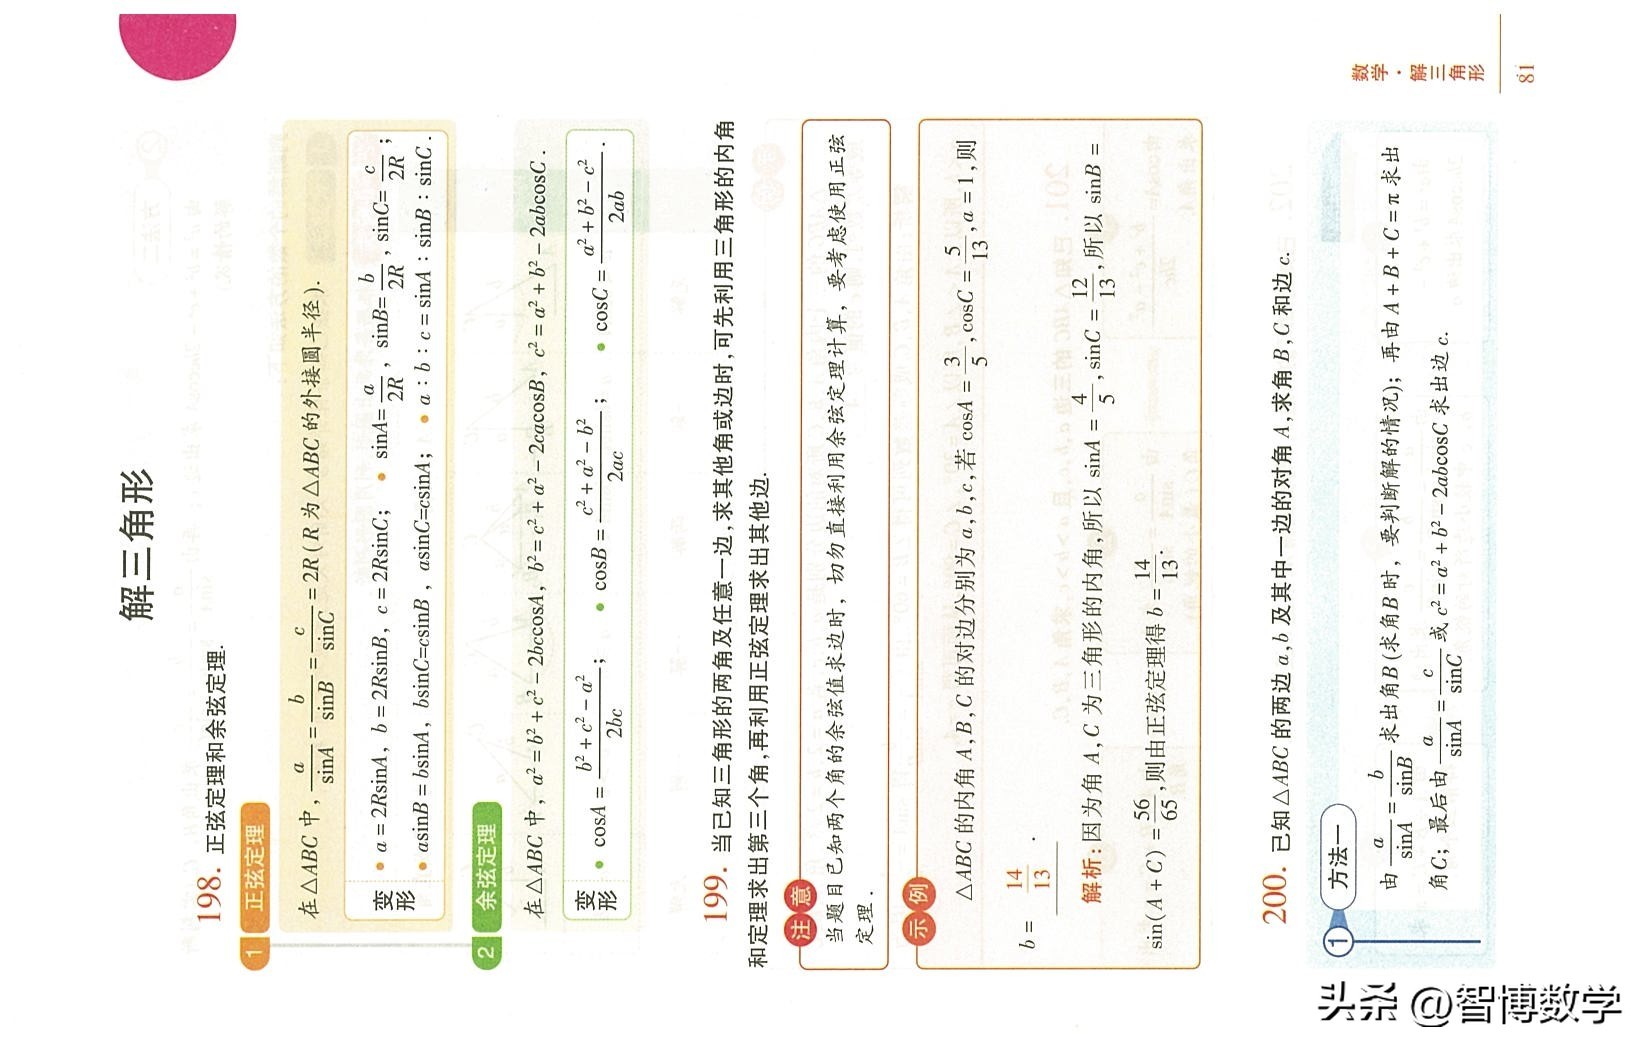 解三角形
198. 正弦定理和余弦定理.
1 正弦定理
在△ABC中, a/sinA = b/sinB = c/sinC = 2R(R为△ABC的外接圆半径).
变形
• a=2RsinA, b=2RsinB, c=2RsinC; • sinA=a/2R, sinB=b/2R, sinC=c/2R;
• asinB=bsinA, bsinC=csinB, asinC=csinA; • a:b:c=sinA:sinB:sinC.
2 余弦定理
在△ABC中, a²=b²+c²-2bccosA, b²=c²+a²-2cacosB, c²=a²+b²-2abcosC.
变形
• cosA=(b²+c²-a²)/2bc; • cosB=(c²+a²-b²)/2ac; • cosC=(a²+b²-c²)/2ab.
199. 当已知三角形的两角及任意一边,求其他角或边时,可先利用三角形的内角
和定理求出第三个角,再利用正弦定理求出其他边.
注意
当题目已知两个角的余弦值求边时, 切勿直接利用余弦定理计算, 要考虑使用正弦
定理.
示例
△ABC的内角A,B,C的对边分别为a,b,c,若cosA=3/5,cosC=5/13,a=1,则
b= 14/13 .
解析:因为角A,C为三角形的内角,所以sinA=4/5,sinC=12/13,所以sinB=
sin(A+C)=56/65,则由正弦定理得b=14/13.
200. 已知△ABC的两边a,b及其中一边的对角A,求角B,C和边c.
1 方法一
由a/sinA=b/sinB求出角B(求角B时, 要判断解的情况); 再由A+B+C=π求出
角C; 最后由a/sinA=c/sinC或c²=a²+b²-2abcosC求出边c.
数学·解三角形
81
头条 @智博数学